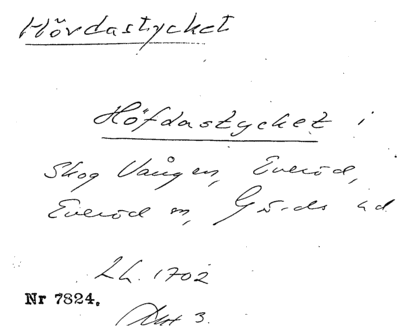 Hövdastycket
Höfdastycket i
Skog Vången, Everöd,
Everöd sn, Gärds hd
Lh. 1702
Nr 7824.
Akt 3.